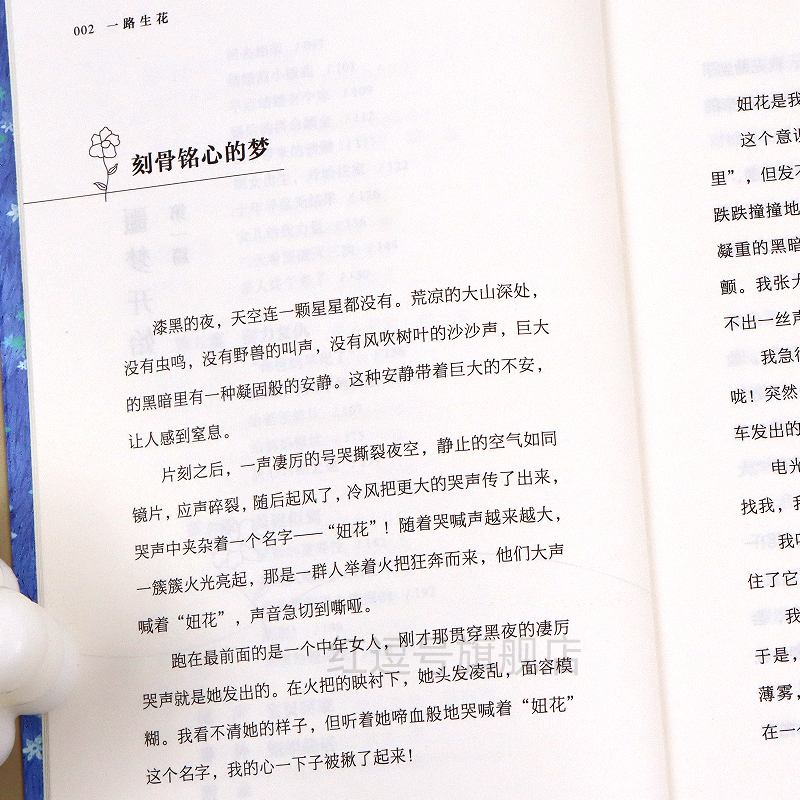 002 一路生花
刻骨铭心的梦
漆黑的夜，天空连一颗星星都没有。荒凉的大山深处，
没有虫鸣，没有野兽的叫声，没有风吹树叶的沙沙声，巨大
的黑暗里有一种凝固般的安静。这种安静带着巨大的不安，
让人感到窒息。
片刻之后，一声凄厉的号哭撕裂夜空，静止的空气如同
镜片，应声碎裂，随后起风了，冷风把更大的哭声传了出来，
哭声中夹杂着一个名字——“妞花”！随着哭喊声越来越大，
一簇簇火光亮起，那是一群人举着火把狂奔而来，他们大声
喊着“妞花”，声音急切到嘶哑。
跑在最前面的是一个中年女人，刚才那贯穿黑夜的凄厉
哭声就是她发出的。在火把的映衬下，她头发凌乱，面容模
糊。我看不清她的样子，但听着她啼血般地哭喊着“妞花”
这个名字，我的心一下子被揪了起来！
红逗号旗舰店
妞花是我
这个意识
里”，但发不
跌跌撞撞地
凝重的黑暗
颤。我张大
不出一丝声
我急得
咙！突然
车发出的
电光
找我，我
我叫
住了它
我
于是，
薄雾，
在一个